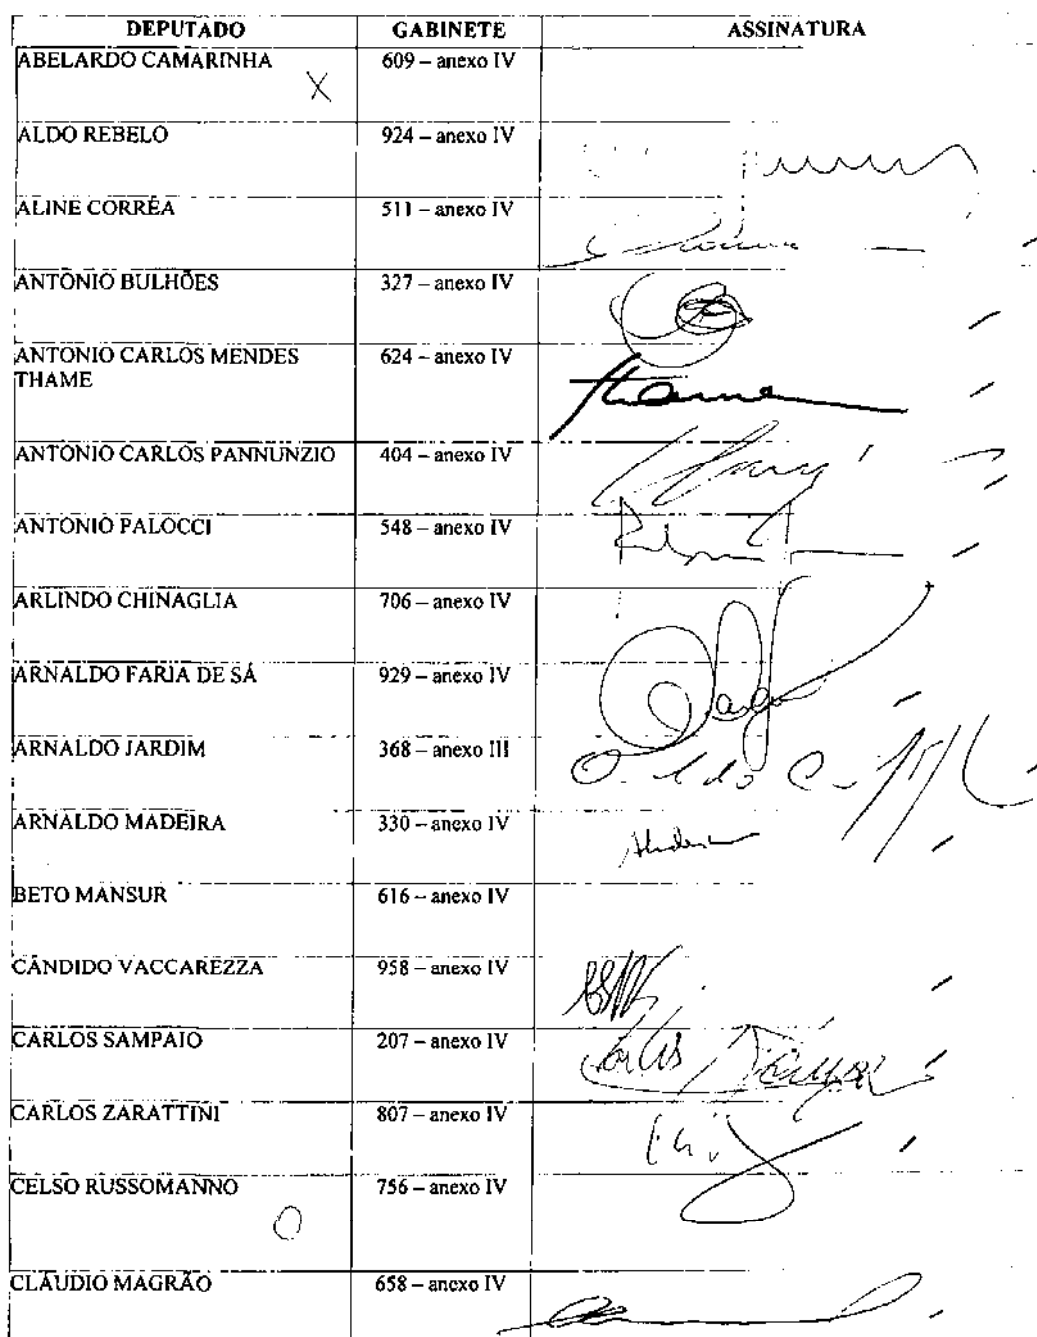 DEPUTADO GABINETE ASSINATURA
ABELARDO CAMARINHA 609 – anexo IV
X
ALDO REBELO 924 – anexo IV
ALINE CORRÊA 511 – anexo IV
ANTÔNIO BULHÕES 327 – anexo IV
ANTONIO CARLOS MENDES 624 – anexo IV
THAME
Thame
ANTONIO CARLOS PANNUNZIO 404 – anexo IV
ANTONIO PALOCCI 548 – anexo IV
ARLINDO CHINAGLIA 706 – anexo IV
ARNALDO FARIA DE SÁ 929 – anexo IV
ARNALDO JARDIM 368 – anexo III
ARNALDO MADEIRA 330 – anexo IV
BETO MANSUR 616 – anexo IV
CÂNDIDO VACCAREZZA 958 – anexo IV
CARLOS SAMPAIO 207 – anexo IV
Carlos Sampaio
CARLOS ZARATTINI 807 – anexo IV
CELSO RUSSOMANNO 756 – anexo IV
O
CLÁUDIO MAGRÃO 658 – anexo IV